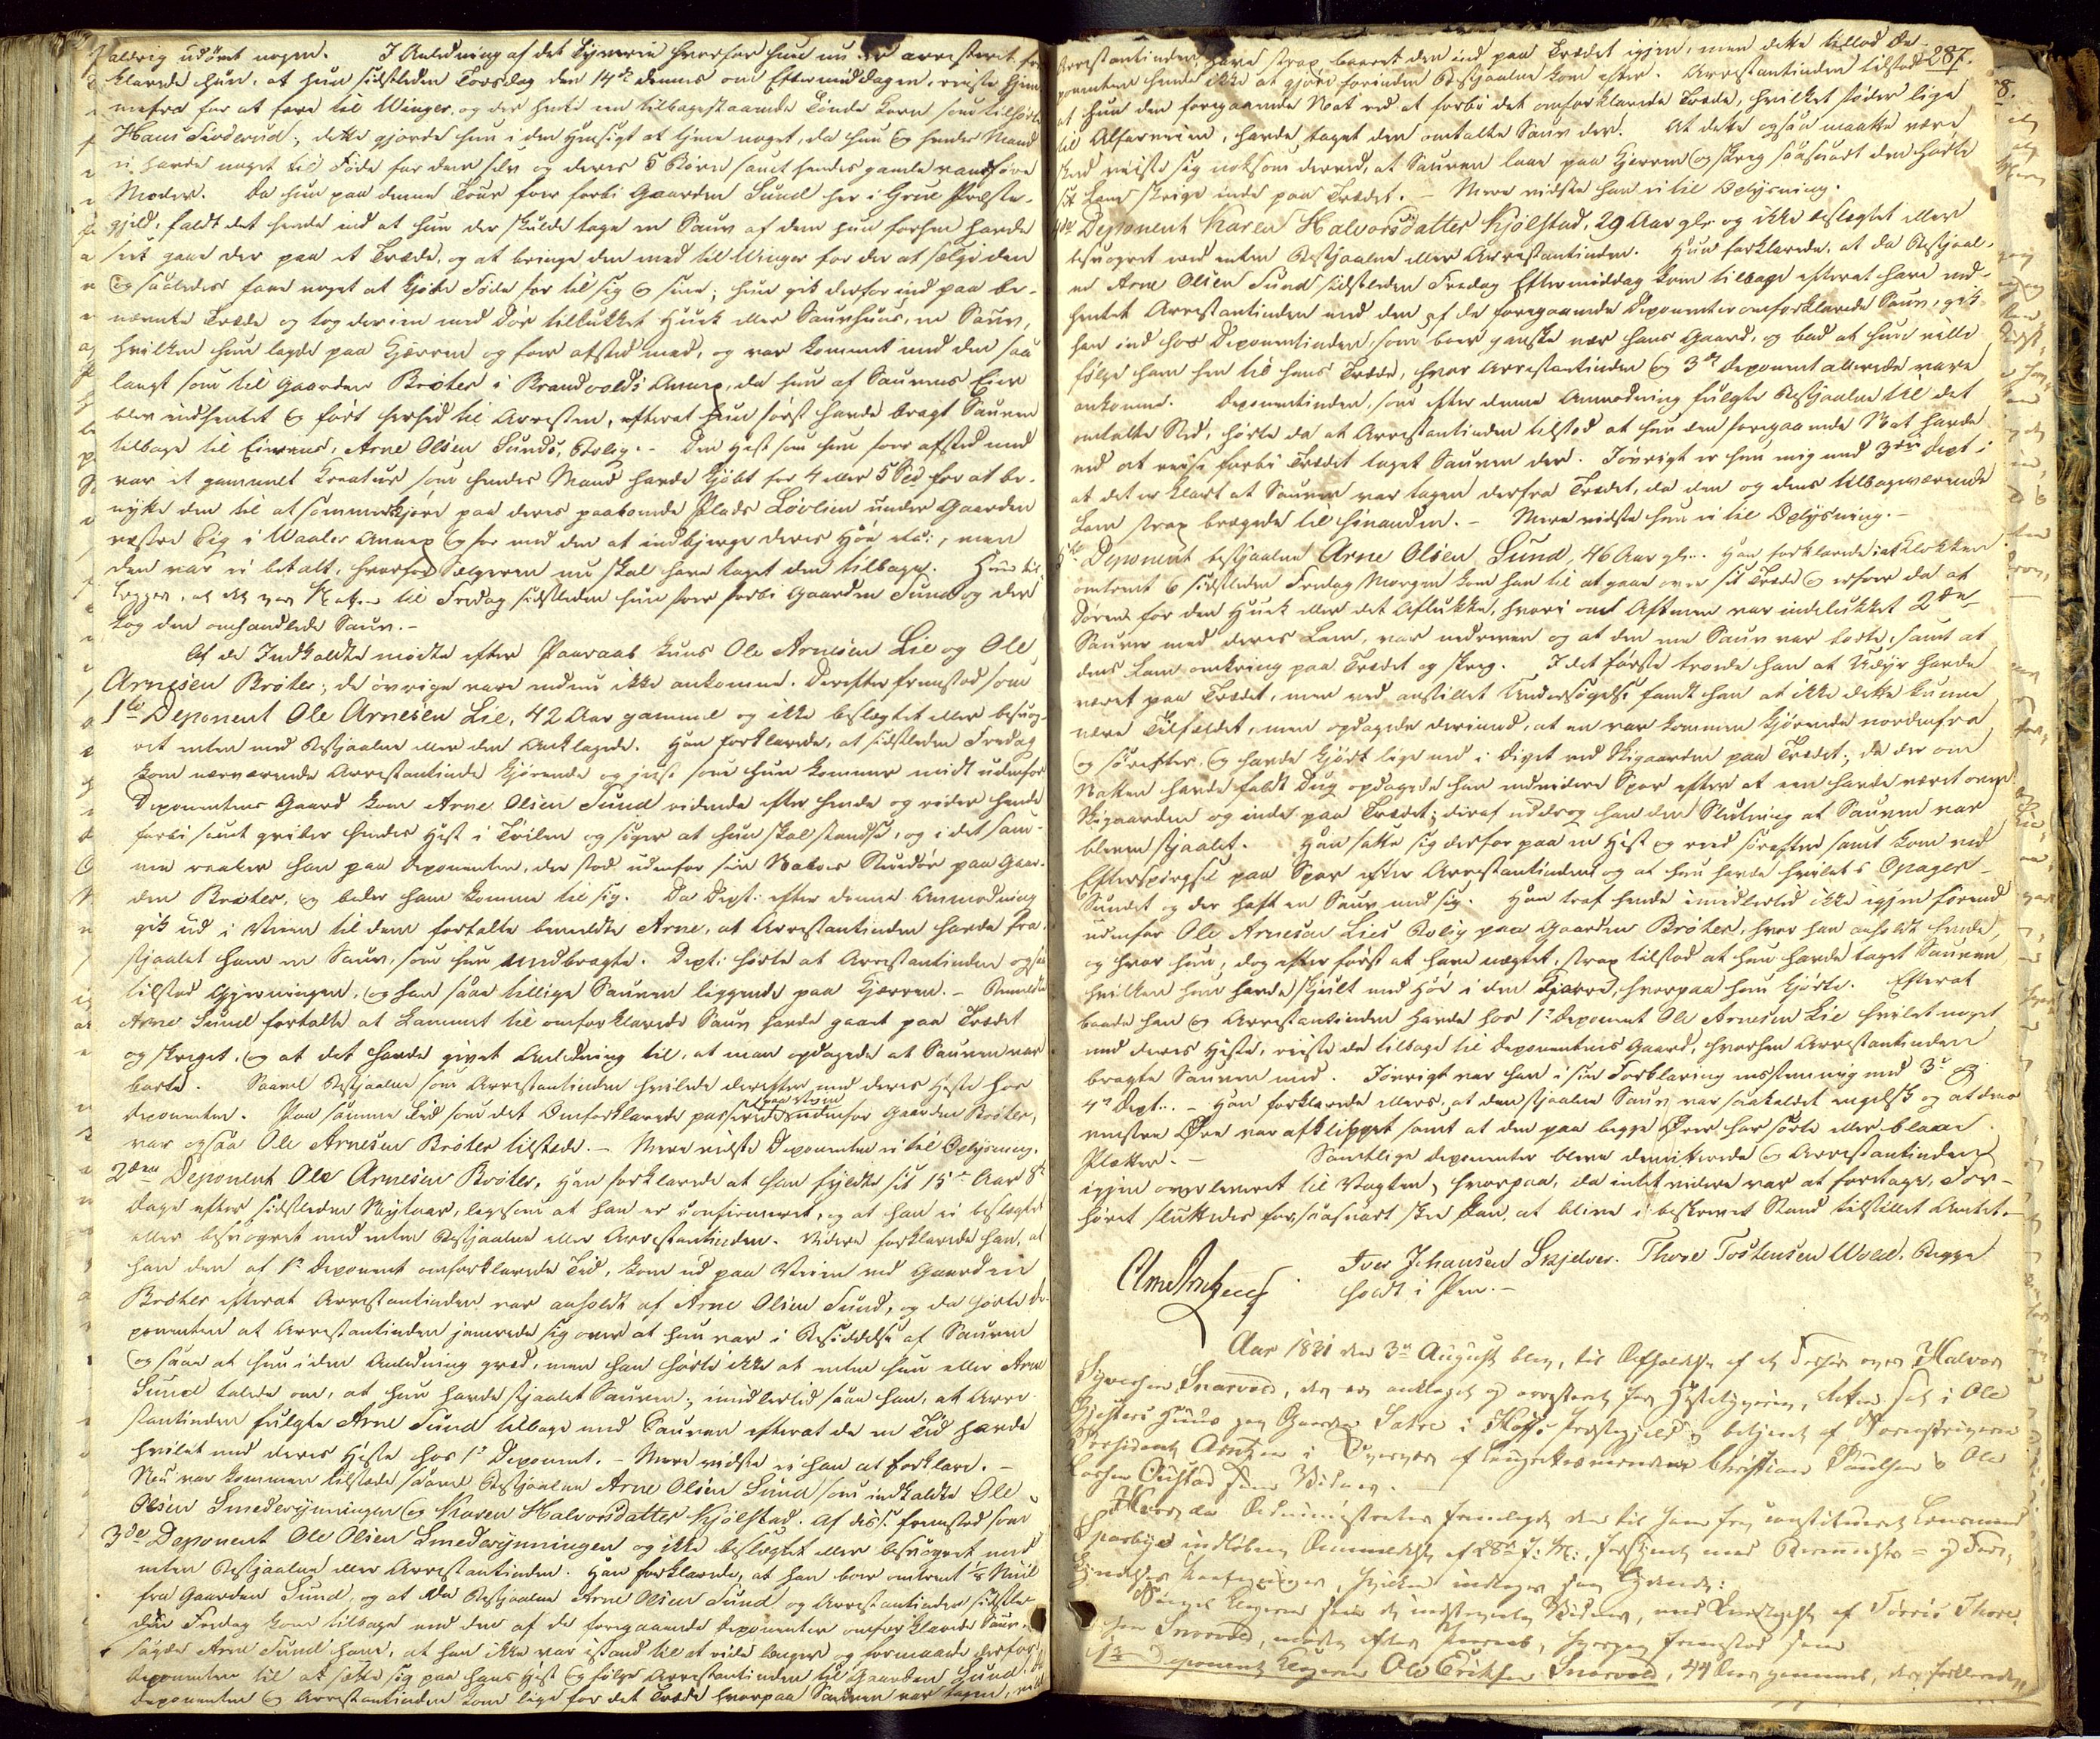 aldrig udövet nogen. I Anledning af det Tyverie hvorfor hun nu er arresteret for
klarede hun, at hun sidstleden Torsdag den 14de dennes om Eftermiddagen, reiste hjem
mefra for at fare til Winger, og der hente en tilbagestaaende Tönde Korn som tilhörte
Hans ; dette gjorde hun i den Hensigt at tjene noget, da hun og hendes Mand
ei havde noget til Föde for dem selv og deres 5 Börn samt hendes gamle vanföre
Moder. Da hun paa denne Tour foer forbi Gaarden Sund her i Grue Præste-
gjeld, faldt det hende ind at hun der skulde tage en Sauv af dem hun forhen havde
seet gaae der paa et Træde, og at bringe den med til Winger for der at sælge den
og saaledes faae noget at kjöbe Föde for til sig og sine; hun gik derfor ind paa be-
nævnte Træde og tog derinn med Dör tillukket Huus eller Sauvhuus, en Sauv,
hvilken hun lagde paa Kjærren og foer afsted med, og var kommet med den saa
langt som til Gaarden Bröten i Brandvolds Annex, da hun af Sauvens Eier
blev indhentet og fört herhid til Arresten, efterat hun först havde bragt Sauven
tilbage til Eierens, Arne Olsen Sunds, Bolig. - Den Hest som hun foer afsted med
var et gammelt Kreatur som hendes Mand havde kjöbt for 4 eller 5 Spd for at be-
nytte den til at sommerkjöre paa deres paaboende Plads Lövlien under Gaarden
væstre Eig i Waaler Annex og for med den at indbjerge deres Höe etc:, men
den var ei betalt, hvorfor Sælgeren nu skal have taget den tilbage. Hun til
legger, at det var Natten til Fredag sidstleden hun foer forbi Gaarden Sund og der
tog den omhandlede Sauv. -
Af de Indkaldte mödte efter Paaraab kuns Ole Arnesen Lie og Ole
Arnesen Bröten; de övrige vare endnu ikke ankomne. Derefter fremstod som
1te Deponent Ole Arnesen Lie, 42 Aar gammel og ikke beslægtet eller besvog-
ret enten med Bestjaalne eller den Anklagede. Han forklarede, at sidstleden Fredag
kom nærværende Arrestantinde kjörende og just som hun kommer midt udenfor
Deponentens Gaard kom Arne Olsen Sund ridende efter hende og rider hende
forbi samt griber hendes Hest i Töilen og siger at hun skal standse, og i det sam-
me raaber han paa Deponenten, der stod udenfor sin Naboes Stuedör paa Gaar-
den Bröten, og beder ham komme til sig. Da Dept: efter denne Anmodning
gik ud i Veien til dem fortalte bemeldte Arne, at Arrestantinden havde fra-
stjaalet ham en Sauv, som hun medbragte. Dept: hörte at Arrestantinden ogsaa
tilstod Gjerningen, og han saae tillige Sauven liggende paa Kjærren. - Bemeldte
Arne Sund fortalte at Lammet til omforklarede Sauv havde gaaet paa Trædet
og skreget, og at det havde givet Anledning til, at man opdagede at Sauven var
borte. Saavel Bestjaalne som Arrestantinden hvilede derefter med deres Heste hos
Deponenten. Paa samme Tid som det Omforklarede passerede udenfor Gaarden Bröten,
var ogsaa Ole Arnesen Bröten tilstede. - Mere vidste Deponenten ei til Oplysning.
2den Deponent Ole Arnesen Bröten. Han forklarede at han fyldte sit 15de Aar 8te
Dage efter sidstleden Nytaar, ligesom at han er confirmeret, og at han ei beslægtet
eller besvogret med enten Bestjaalne eller Arrestantinden. Videre forklarede han, at
han den af 1te Deponent omforklarede Tid, kom ud paa Veien ved Gaarden
Bröten efterat Arrestantinden var anholdt af Arne Olsen Sund, og da hörte De-
ponenten at Arrestantinden jamrede sig over at hun var i Besiddelse af Sauven
og saae at hun i den Anledning græd, men han hörte ikke at enten hun eller Arne
Sund talede om, at hun havde stjaalet Sauven; imidlertid saae han, at Arre-
stantinden fulgte Arne Sund tilbage med Sauven efterat de en Tid havde
hvilet med deres Heste hos 1te Deponent. - Mere vidste ei han at forklare. -
Nu var kommen tilstede saavel Bestjaalne Arne Olsen Sund som indkaldte Ole
Olsen Smedrynningen og Karen Halvorsdatter Kjölstad. Af disse fremstod som
3de Deponent Ole Olsen Smedrynningen og ikke beslægtet eller besvogret med
enten Bestjaalne eller Arrestantinden. Han forklarede, at han boer omtrent 1/8 Miil
fra Gaarden Sund, og at da Bestjaalne Arne Olsen Sund og Arrestantinden sidstle-
den Fredag kom tilbage med den af de foregaaende Deponenter omforklarede Sauv,
sagde Arne Sund ham, at han ikke var istand til at ride længer og formaaede derfor
Deponenten til at sætte sig paa hans Hest og fölge Arrestantinden til Gaarden Sund, da
Deponenten og Arrestantinden kom lige for det Træde hvorpaa Sauven var tagen, vilde
287.
Arrestantinden have strax baaret den ind paa Trædet igjen, men dette tillod De-
ponenten hende ikke at gjöre forinden Bestjaalne kom efter. Arrestantinden tilstod
at hun den foregaaende Nat ved at forbi det omforklarede Træde, hvilket stöder lige
til Alfarveien, havde taget den omtalte Sauv der. At dette ogsaa maatte være
skeed viiste sig noksom derved, at Sauven laae paa Kjerren og skreg saasnart den hörte
sit Lam skrige inde paa Trædet. - Mere vidste han ei til Oplysning.
4de Deponent Karen Halvorsdatter Kjölstad, 29 Aar glr og ikke beslægtet eller
besvogret med enten Bestjaalne eller Arrestantinden. Hun forklarede, at da Bestjaal-
ne Arne Olsen Sund sidstleden Fredag Eftermiddag kom tilbage efterat have ind-
hentet Arrestantinden med den af de foregaaende Deponenter omforklarede Sauv, gik
han ind hos Deponentinden, som boer ganske nær hans Gaard, og bad at hun vilde
fölge ham hen til hans Træde, hvor Arrestantinden og 3de Deponent allerede vare
ankomne. Deponentinden, som efter denne Anmodning fulgte Bestjaalne til det
omtalte Sted, hörte da at Arrestantinden tilstod at hun den foregaaende Nat havde
ved at reise forbi Trædet taget Sauven der. Iövrigt er hun enig med 3die Dept i
at det er klart at Sauven var tagen derfra Trædet, da den og dens tilbageværende
Lam strax brægede til hinanden. - Mere vidste hun ei til Oplysning. -
5te Deponent bestjaalne Arne Olsen Sund, 46 Aar gl:. Han forklarede at Klokken
omtrent 6 sidstleden Fredag Morgen kom han til at gaae over sit Træde og erfoer da at
Dören for den Huus eller det Aflukke, hvori om Aftenen var indelukket 2de
Sauver med deres Lam, var nedreven og at den ene Sauv var borte, samt at
dens Lam omkring paa Trædet og skreg. I det förste troede han at Udyr havde
været paa Trædet, men ved anstillet Undersögelse fandt han at ikke dette kunne
være Tilfældet, men opdagede derimod, at en var kommen kjörende nordenfra
og sörefter, og havde kjört lige ned i Diget ved Skigaarden paa Trædet; da der om
Natten havde faldt Dug opdagede han endvidere Spor efter at een havde været over
Skigaarden og inde paa Trædet; deraf uddrog han den Slutning at Sauven var
bleven stjaalet. Han satte sig derfor paa en Hest og reed sörefter samt kom ved
Efterspörgsel paa Spor efter Arrestantinden og at hun havde hvilet i Opager-
Sundet og der haft en Sauv med sig. Han traf hende imidlertid ikke igjen förend
udenfor Ole Arnesen Lies Bolig paa Gaarden Bröten, hvor han anholdt hende,
og hvor hun, dog efter först at have nægtet, strax tilstod at hun havde taget Sauven
hvilken hun havde skjult med Höe i den Kjærre, hvorpaa hun kjörte. Efterat
baade han og Arrestantinden havde hos 1te Deponent Ole Arnesen Lie hvilet noget
med deres Heste, reiste de tilbage til Deponentens Gaard, hvorhen Arrestantinden
bragte Sauven med. Iövrigt var han i sin Forklaring eenstemmig med 3de og
4de Dept.. - Han forklarede ellers, at den stjaalne Sauv var saakaldet engelsk og at dens
venstre Öre var afklippet samt at den paa begge Örer har sorte eller blaae
Pletter. - Samtlige Deponenter bleve demitterede og Arrestantinden
igjen overleveret til Vagten, hvorpaa, da intet videre var at foretage, For-
höret sluttedes for, saasnart skee kan, at blive i beskrevet Stand tilstillet Amtet. -
Iver Johansen Skjelver. Thore Tostensen Wold. Begge
holdt i Pen. -
Aar 1821 den 3de August blev, til Afholdelse af et Forhör over Halvor
Syversen Snarvold, der er anklaget og arresteret for Hestetyverie, Retten sat i Ole
Huus paa Gaarden Sætre i Hoffs Præstegjeld og betjent af Sorenskriveren
President Arntzen i Overvær af Laugrettesmændene Christian Poulsen og Ole
Larsen som Vidner.
Hvor da Administrator fremlagde den til ham fra constitueret Lensmand
Sparbye indlöbne Anmeldelse af 28de f: M:, forsynet med Berammelse- og For-
kyndelses Paategninger, hvilken indtages saa lydende:
Saavel Klageren som de indstævnte Vidner, med Undtagelse af Törris Thore
sen Snarvold, mödte efter Paaraab, hvorpaa fremstod som
1te Deponent Klageren Ole Eriksen Snarvold, 44 Aar gammel, der forklarede,